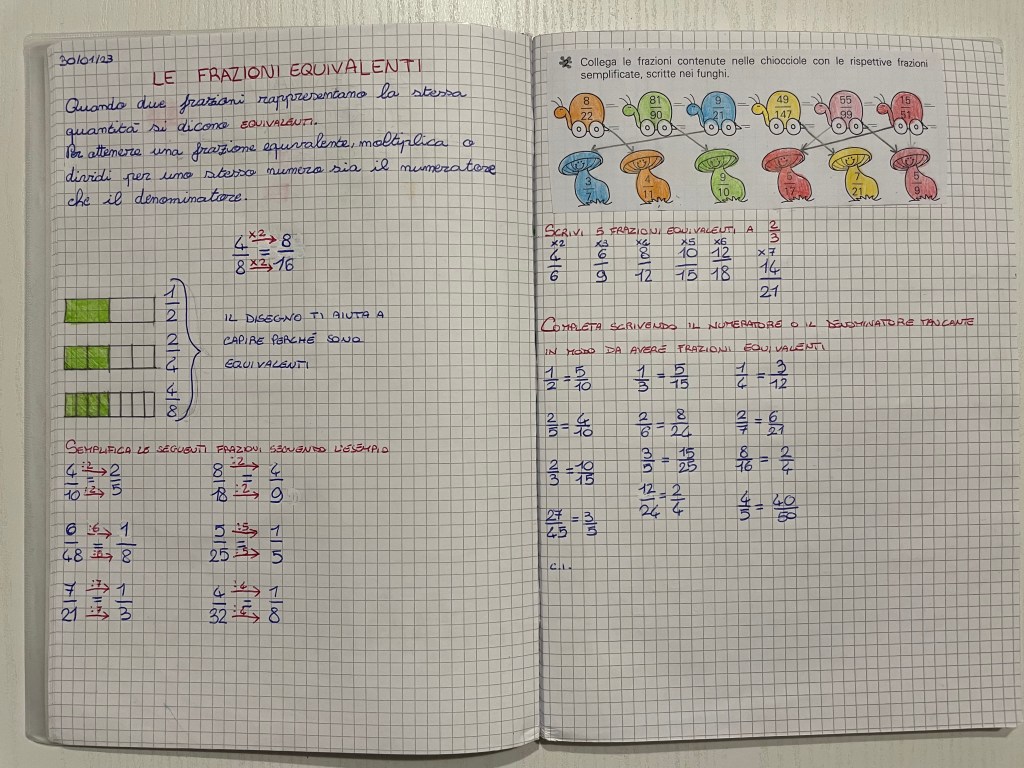 30/01/23
LE FRAZIONI EQUIVALENTI
Quando due frazioni rappresentano la stessa
quantità si dicono EQUIVALENTI.
Per ottenere una frazione equivalente, moltiplica o
dividi per uno stesso numero sia il numeratore
che il denominatore.
×2
4/8 = 8/16
×2
1/2
2/4
4/8
IL DISEGNO TI AIUTA A
CAPIRE PERCHÉ SONO
EQUIVALENTI
SEMPLIFICA LE SEGUENTI FRAZIONI SEGUENDO L'ESEMPIO
:2 :2
4/10 = 2/5 8/18 = 4/9
:2 :2
:6 :5
6/48 = 1/8 5/25 = 1/5
:6 :5
:7 :4
7/21 = 1/3 4/32 = 1/8
:7 :4
Collega le frazioni contenute nelle chiocciole con le rispettive frazioni
semplificate, scritte nei funghi.
8/22 81/90 9/21 49/147 55/99 15/51
3/7 4/11 9/10 5/17 7/21 5/9
SCRIVI 5 FRAZIONI EQUIVALENTI A 2/3
×2 ×3 ×4 ×5 ×6 ×7
4/6 6/9 8/12 10/15 12/18 14/21
COMPLETA SCRIVENDO IL NUMERATORE O IL DENOMINATORE MANCANTE
IN MODO DA AVERE FRAZIONI EQUIVALENTI
1/2 = 5/10 1/3 = 5/15 1/4 = 3/12
2/5 = 4/10 2/6 = 8/24 2/7 = 6/21
2/3 = 10/15 3/5 = 15/25 8/16 = 2/4
27/45 = 3/5 12/24 = 2/4 4/5 = 40/50
C.I.